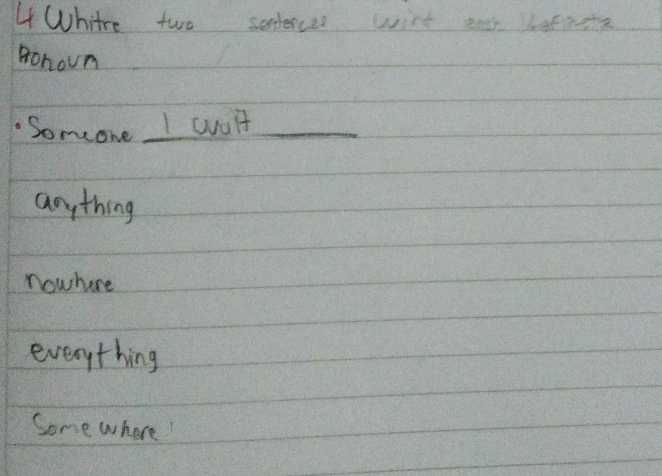 4 Whitre two sentences wirt each
Ponoun
• Someone I wuit
anything
nowhere
everything
Somewhere